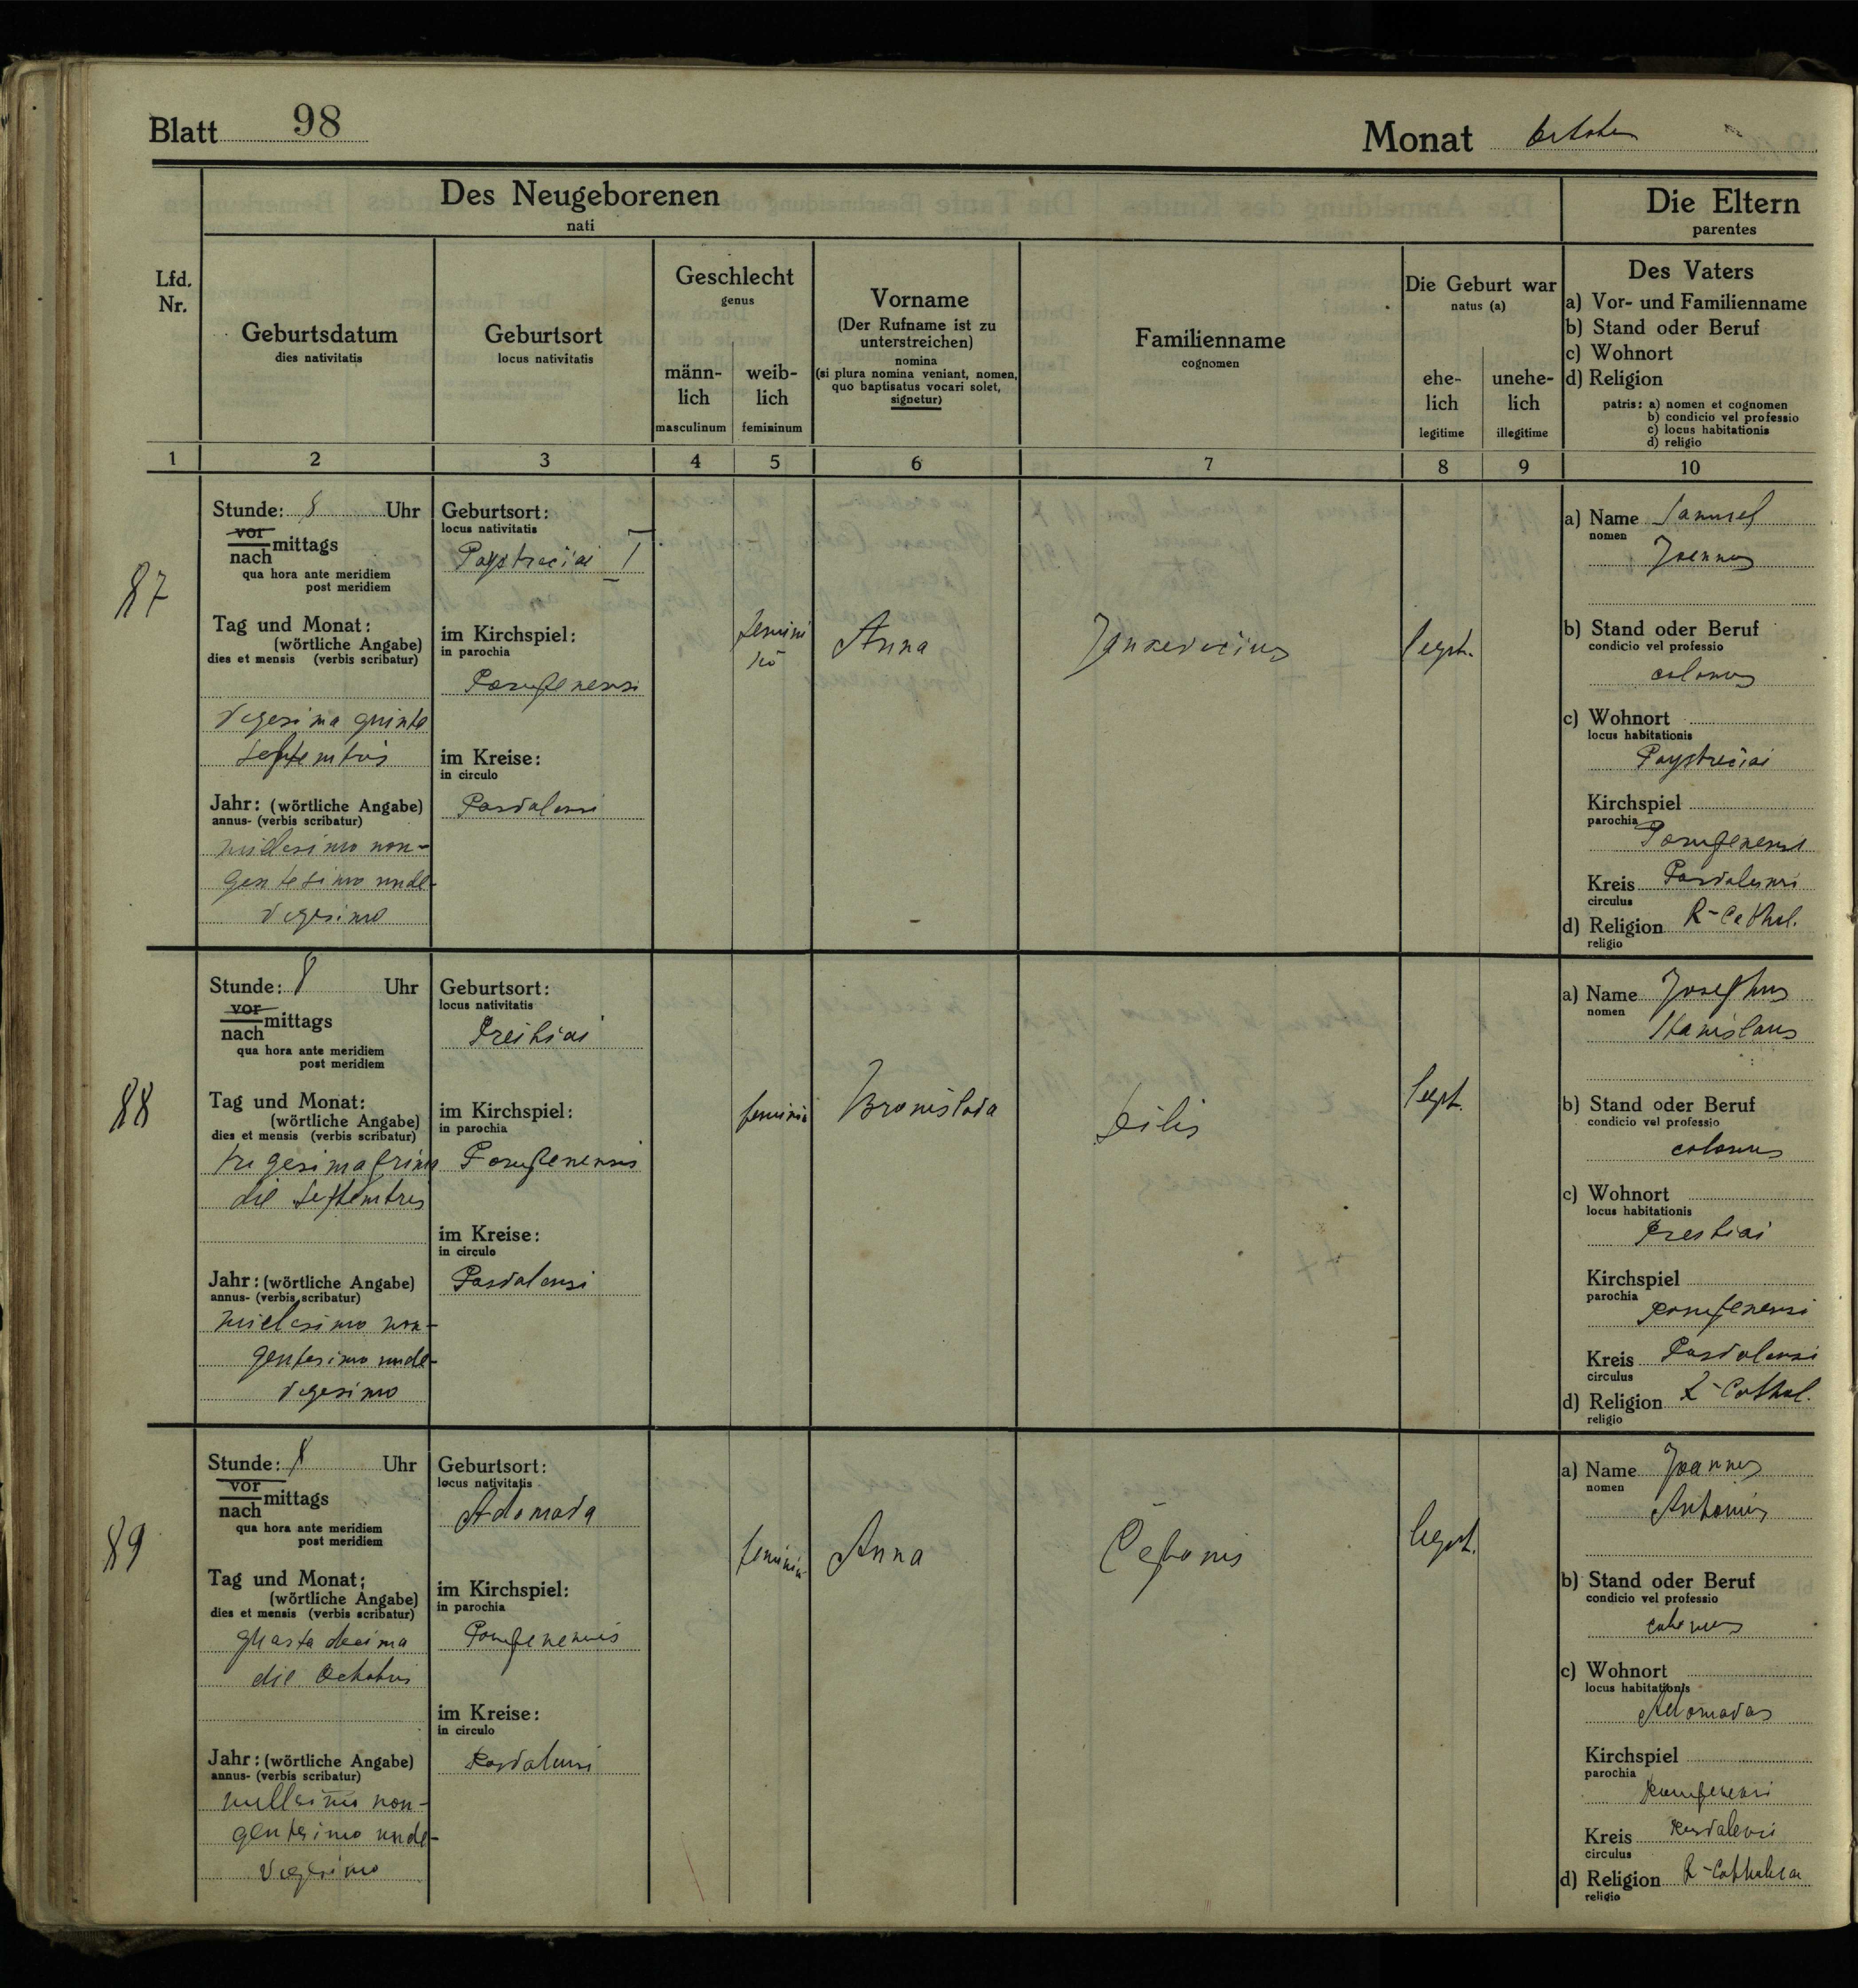 Blatt 98
Monat
Des Neugeborenen
nati
Die Eltern
parentes
Lfd.
Nr.
Geburtsdatum
dies nativitatis
Geburtsort
locus nativitatis
Geschlecht
genus
männ-
lich
masculinum
weib-
lich
femininum
Vorname
(Der Rufname ist zu
unterstreichen)
nomina
(si plura nomina veniant, nomen,
quo baptisatus vocari solet,
signetur)
Familienname
cognomen
Die Geburt war
natus (a)
ehe-
lich
legitime
unehe-
lich
illegitime
Des Vaters
a) Vor- und Familienname
b) Stand oder Beruf
c) Wohnort
d) Religion
patris: a) nomen et cognomen
b) condicio vel professio
c) locus habitationis
d) religio
1 2 3 4 5 6 7 8 9 10
87
Stunde: 8 Uhr
vor
nach mittags
qua hora ante meridiem
post meridiem
Tag und Monat:
(wörtliche Angabe)
dies et mensis (verbis scribatur)
vigesima quinta
Septembris
Jahr: (wörtliche Angabe)
annus- (verbis scribatur)
millesimo non-
gentesimo unde-
vigesimo
Geburtsort:
locus nativitatis
Paystrečiai I
im Kirchspiel:
in parochia
im Kreise:
in circulo
Anna
legit.
a) Name
nomen
Joannes
b) Stand oder Beruf
condicio vel professio
colonus
c) Wohnort
locus habitationis
Paystrečiai
Kirchspiel
parochia
Kreis
circulus
d) Religion R-Cathol.
religio
88
Stunde: 8 Uhr
vor
nach mittags
qua hora ante meridiem
post meridiem
Tag und Monat:
(wörtliche Angabe)
dies et mensis (verbis scribatur)
trigesima prima
die Septembris
Jahr: (wörtliche Angabe)
annus- (verbis scribatur)
millesimo non-
gentesimo unde-
vigesimo
Geburtsort:
locus nativitatis
im Kirchspiel:
in parochia
im Kreise:
in circulo
Bronislava
legit.
a) Name Josephus
nomen
Stanislaus
b) Stand oder Beruf
condicio vel professio
colonus
c) Wohnort
locus habitationis
Kirchspiel
parochia
Kreis
circulus
d) Religion R-Cathol.
religio
89
Stunde: 8 Uhr
vor
nach mittags
qua hora ante meridiem
post meridiem
Tag und Monat:
(wörtliche Angabe)
dies et mensis (verbis scribatur)
quarta decima
die Octobris
Jahr: (wörtliche Angabe)
annus- (verbis scribatur)
millesimo non-
gentesimo unde-
vigesimo
Geburtsort:
locus nativitatis
im Kirchspiel:
in parochia
im Kreise:
in circulo
Anna
Čeponis
legit.
a) Name Joannes
nomen
Antonius
b) Stand oder Beruf
condicio vel professio
colonus
c) Wohnort
locus habitationis
Kirchspiel
parochia
Kreis
circulus
d) Religion R-Catholica
religio